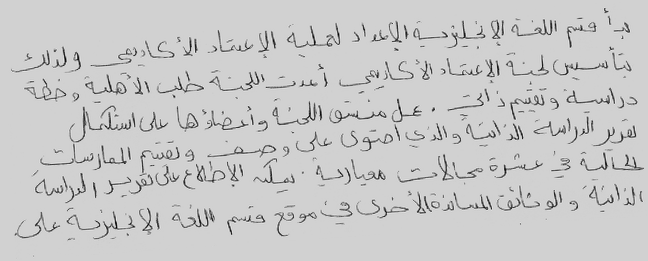 بدأ قسم اللغة الإنجليزية الإعداد لعملية الإعتماد الأكاديمي ولذلك
بتأسيس لجنة الإعتماد الأكاديمي أعدت اللجنة طلب الأهلية وخطة
دراسية وتقييم ذاتي. عمل منسق اللجنة وأعضاؤها على استكمال
تقرير الدراسة الذاتية والذي احتوى على وصف وتقييم الممارسات
الحالية في عشرة مجالات معيارية. يمكنه الإطلاع على تقرير الدراسة
الذاتية والوثائق المساندة الأخرى في موقع قسم اللغة الإنجليزية على